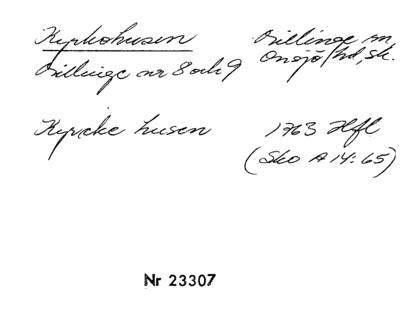 Kyrkohusen
Billinge nr 8 och 9
Billinge sn
Onsjö hd, Sk.
Kyrcke husen
1763 Hfl
(Sko A 14:65)
Nr 23307